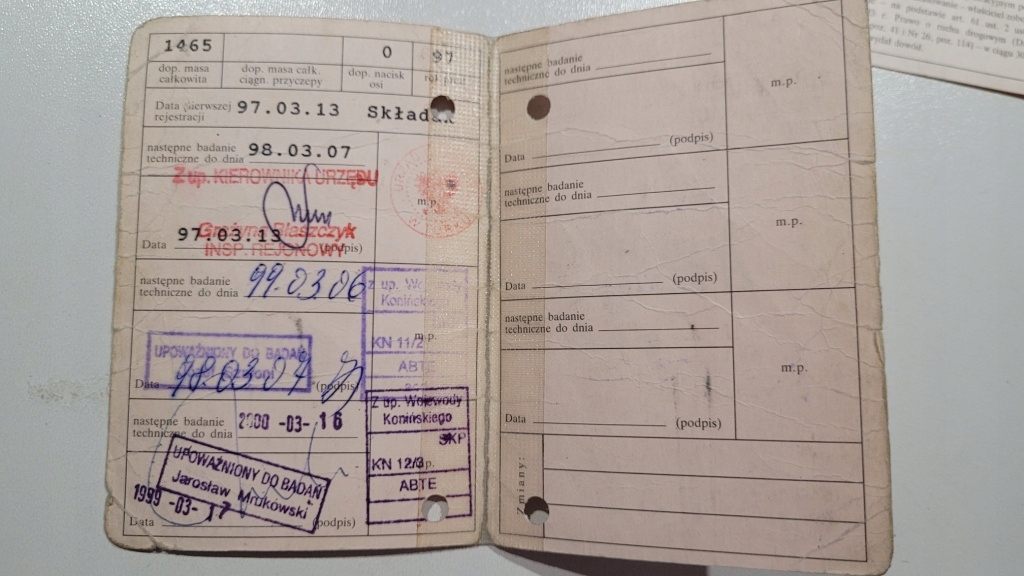 1465 0 97
dop. masa
całkowita
dop. masa całk.
ciągn. przyczepy
dop. nacisk
osi
Data pierwszej
rejestracji 97.03.13 Składak
następne badanie
techniczne do dnia 98.03.07
Z up. KIEROWNIKA URZĘDU
m.p.
Grażyna Błaszczyk
Data 97.03.13 (podpis)
INSP. REJONOWY
następne badanie
techniczne do dnia 99.03.06
Z up. Wojewody
Konińskiego
m.p.
KN 11/2
ABTE
UPOWAŻNIONY DO BADAŃ
Data 98.03.07 (podpis)
następne badanie
techniczne do dnia 2000-03-16
Z up. Wojewody
Konińskiego
SKP
KN 12/3 m.p.
ABTE
UPOWAŻNIONY DO BADAŃ
Jarosław Mrukowski
1999-03-17
Data (podpis)
następne badanie
techniczne do dnia
m.p.
Data (podpis)
następne badanie
techniczne do dnia
m.p.
Data (podpis)
następne badanie
techniczne do dnia
m.p.
Data (podpis)
Zmiany:
- na podstawie art. 61 ust. 2
r. Prawo o ruchu drogowym
poz. 41 i Nr 26, poz. 114) – w ciągu 30
wydał dowód.